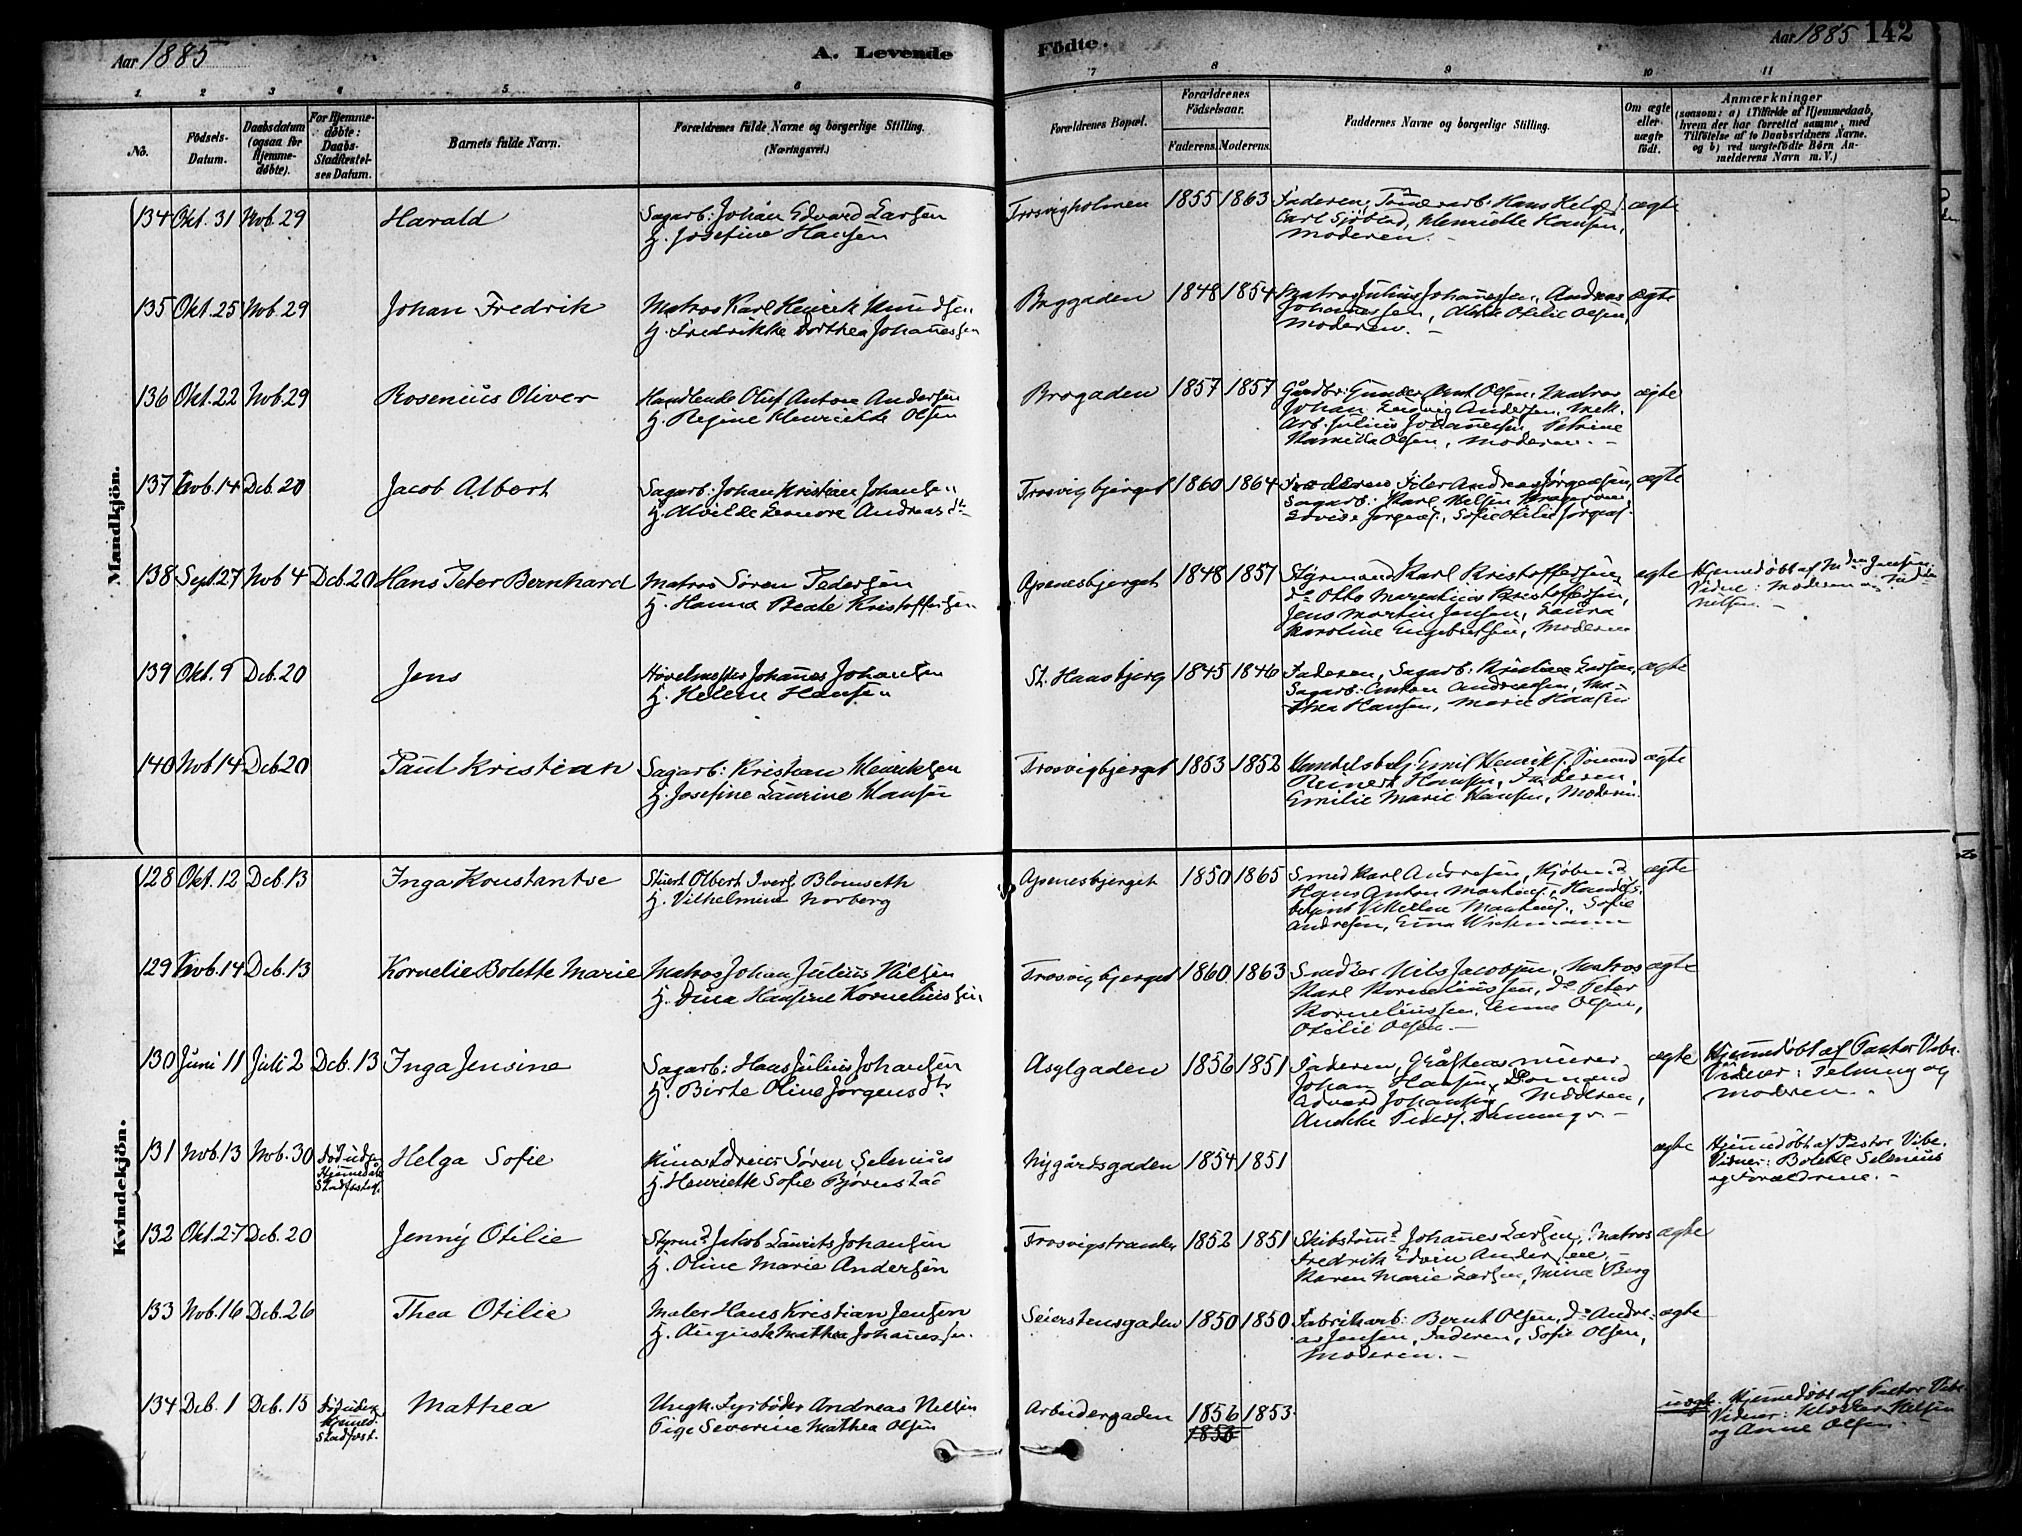 Aar 1885
A. Levende
Födte.
Aar 1885 142
1. 2 3 4 5 6 7 8 9 10 11
No.
Födsels-
Datum.
Daabsdatum
(ogsaa for
Hjemme-
døbte).
For Hjemme-
døbte:
Daabs-
Stadfæstel-
ses Datum.
Barnets fulde Navn.
Forældrenes fulde Navne og borgerlige Stilling.
(Næringsvei.)
Forældrenes Bopæl.
Forældrenes
Födselsaar.
Faderens. Moderens.
Faddernes Navne og borgerlige Stilling.
Om ægte
eller
uægte
født.
Anmærkninger
(saasom: a) i Tilfælde af Hjemmedaab,
hvem der har forrettet samme, med
Tilføielse af to Daabsvidners Navne.
og b) ved uægtefødte Börn An-
melderens Navn m. V.)
Mandkjön.
134 Okt. 31 Nob. 29 Harald
Sagarb: Johan Edvard Larsen
H. Josefine Hansen
Trosvigholmen 1855 1863
Faderen, Hans Helg
Carl Sjöblad, Henriette Hansen,
Moderen.
ægte
135 Okt. 25 Nob. 29 Johan Fredrik
Matros Karl Henrik
H. Fredrikke Dorthea Johanessen
Baggaden 1848 1854
Matros Julius Johanessen, Andreas
Johanessen, Otilie Olsen,
Moderen.
ægte
136 Okt. 22 Nob. 29 Rosenius Oliver
Handlende Oluf Anton Andersen
H. Regine Henriette Olsen
Brogaden 1857 1857
Gårdbr: Gunder Olsen, Matros
Johan Ludvig Andersen, Mek.
Arb. Julius Johanessen,
Olsen, Moderen.
ægte
137 Nob. 14 Deb. 20 Jacob Albert
Sagarb: Johan Kristian Johansen
H. Alvilde Lenore Andreasdtr
Trosvigbjerget 1860 1864
Faderens Peter Andreas Jørgensen,
Sagarb: Karl Nelsen
Jørgens., Sofie Otilie Jørgens.
ægte
138 Sept. 27 Nob 4 Deb. 20 Hans Peter Bernhard
Matros Søren Pedersen
H. Hanna Beate Kristoffersen
Apenesbjerget 1848 1857
Styrmand Karl Kristoffersen,
do Otto Kristoffersen,
Jens Martin Jensen, Laura
Karoline Engebretsen, Moderen
ægte
Hjemmedøbt af Jensen
Vidne: Moderen
Nelsen.
139 Okt. 9 Deb. 20 Jens
Høvelmester Johanes Johansen
H. Helene Hansen
St. Hansbjerg 1845 1846
Faderen, Sagarb: Kristian Larsen,
Sagarb: Anton Andreasen, Ma-
thea Hansen, Marie Hansen
ægte
140 Nob 14 Deb 20 Paul Kristian
Sagarb: Kristian Henriksen
H. Josefine Laurine Hansen
Trosvigbjerget 1853 1852
Handelsb. Emil Henriks.
Reinert Hansen, Faderen,
Emilie Marie Hansen, Moderen.
ægte
Kvindekjön.
128 Okt. 12 Deb. 13 Inga Konstantse
Stuert Olbert Ivers. Blomseth
H. Vilhelmine Norberg
Apenesbjerget 1850 1865
Smed Karl Andresen, Kjøbmd
Hans Anton Martins., Handels-
betjent Martins., Sofie
Andresen, Emma Wickmann
ægte
129 Nob. 14 Deb. 13 Kornelie Bolette Marie
Matros Johan Julius Nilsen
H. Dina Hansine Korneliussen
Trosvigbjerget 1860 1863
Snedker Nils Jacobsen, Matros
Karl Korneliussen, do Peter
Korneliussen, Anne Olsen,
Otilie Olsen.
ægte
130 Juni 11 Juli 2 Deb. 13 Inga Jensine
Sagarb: Hans Julius Johansen
H. Birte Oline Jørgensdtr
Asylgaden 1852 1851
Faderen, Gråstensmurer
Johan Hansen,
Edvard Johansen, Moderen,
Anekke Peders.
ægte
Hjemmedøbt af Pastor Vibe.
Vidner: og
Moderen.
131 Nob. 13 Nob. 30 Død uden
Hjemmedåb
Stadfæst.
Helga Sofie
Søren Selenius
H. Henriette Sofie Bjørenstad
Nygårdsgaden 1854 1851
ægte
Hjemmedøbt af Pastor Vibe.
Vidner: Bolette Selenius
og Forældrene.
132 Okt. 27 Deb. 20 Jenny Otilie
Styrmd Jakob Laurits Johansen
H. Oline Marie Andersen
Trosvigstranden 1852 1851
Skibstømd Johanes Larsen, Matros
Fredrik Edvin Andersen,
Karen Marie Larsen, Mina Berg
ægte
133 Nob. 16 Deb. 26 Thea Otilie
Maler Hans Kristian Jensen
H. Augusta Mathea Johanessen.
Seierstensgaden 1850 1850
Fabrikarb: Bernt Olsen, do Andre-
as Jensen, Faderen, Sofie Olsen,
Moderen.
ægte
134 Deb. 1 Deb. 15 Død uden
Hjemmed.
Stadfæst.
Mathea
Ungk. Fyrbøder Andreas Nelsen
Pige Severine Mathea Olsen
Arbeidergaden 1856 1853.
1856
uægte.
Hjemmedøbt af Pastor Vibe
Vidner: Nilsen
og Anne Olsen.